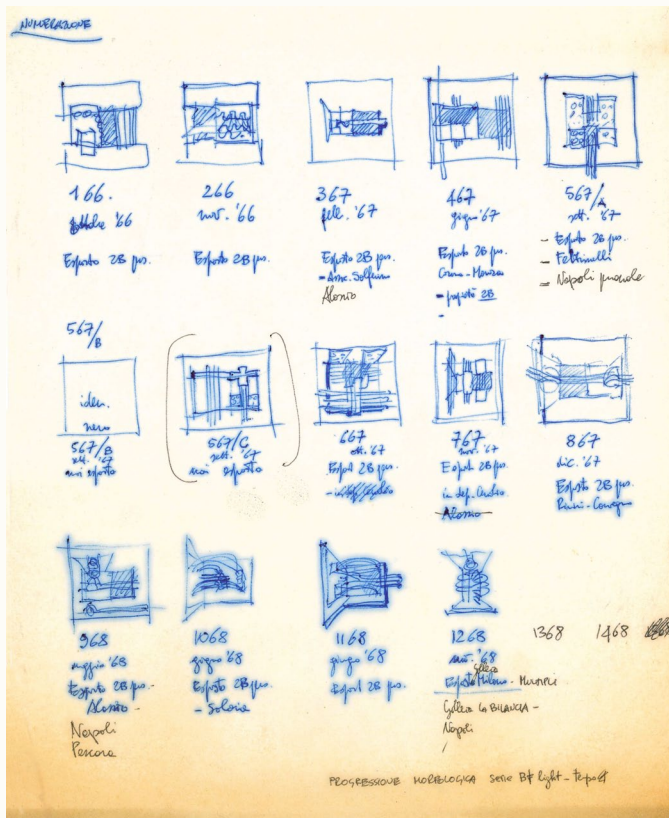 NUMERAZIONE
166.
ottobre '66
Esposto 2B pus.
266
nov. '66
Esposto 2B pus.
367
febb. '67
Esposto 2B pus.
- Assic. Solferino
Alessio
467
giugno '67
Esposto 2B pus.
Como - Monza
2B
-
567/A
sett. '67
- Esposto 2B pus.
- Feltrinelli
- Napoli
567/B
iden.
nero
567/B
sett. '67
mai esposto
567/C
sett. '67
mai esposto
667
ott. '67
Espost 2B pus.
767
nov. '67
Esposto 2B pus.
in dep.
Alessio
867
dic. '67
Esposto 2B pus.
Rimini - Convegno
968
maggio '68
Esposto 2B pus. -
Alessio -
Napoli
Pescara
1068
giugno '68
Esposto 2B pus.
-
1168
giugno '68
Espost 2B pus.
1268
'68
Esposto Milano -
Galleria LA BILANCIA -
Napoli
1368
1468
PROGRESSIONE MORFOLOGICA serie light -